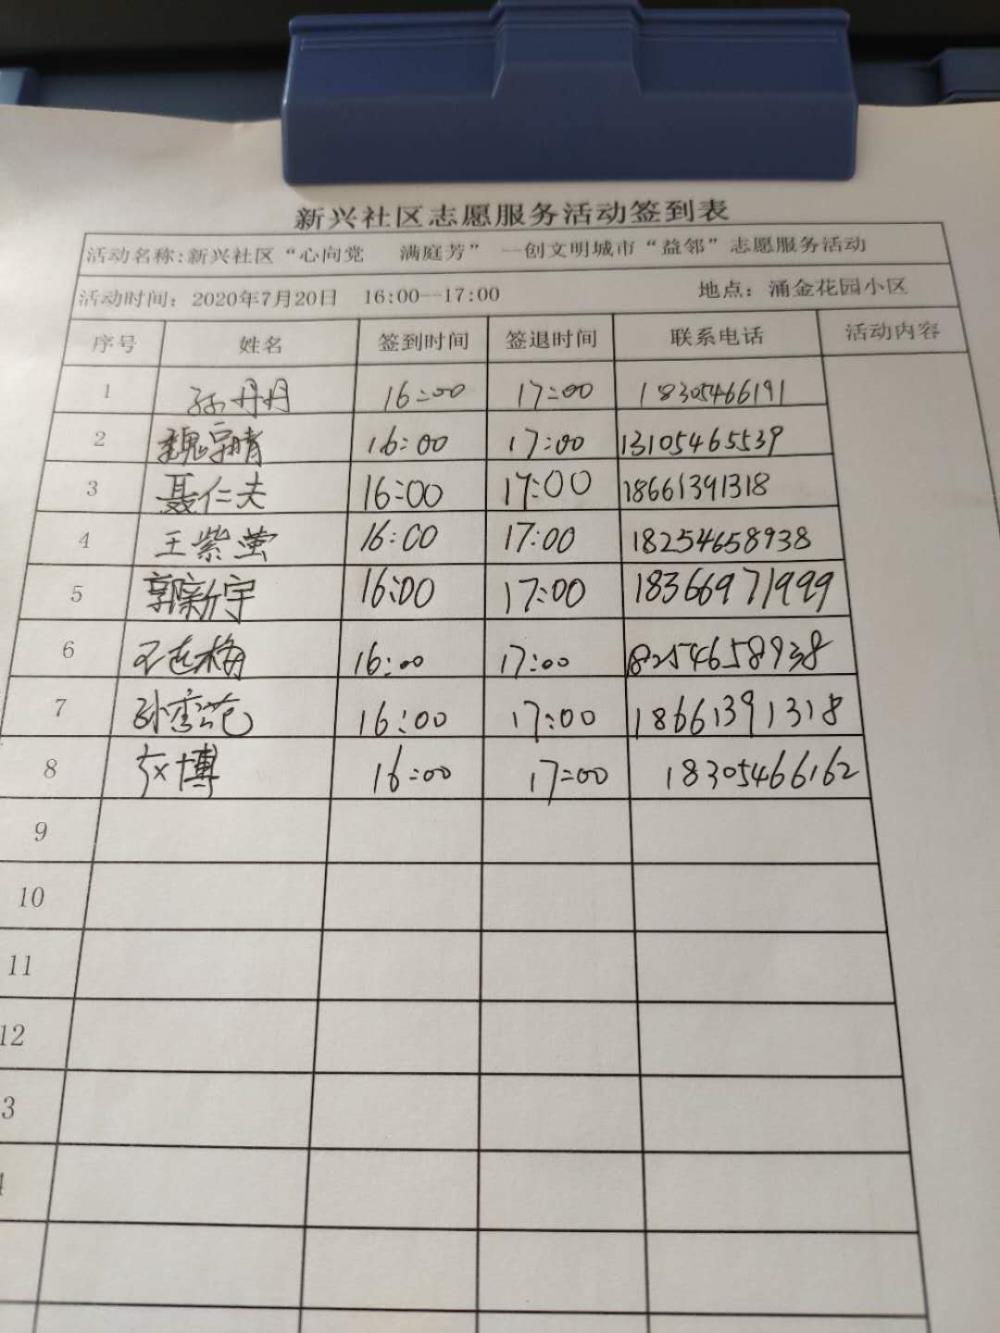 新兴社区志愿服务活动签到表
活动名称:新兴社区“心向党 满庭芳” 一创文明城市“益邻”志愿服务活动
活动时间: 2020年7月20日 16:00--17:00 地点: 涌金花园小区
序号 姓名 签到时间 签退时间 联系电话 活动内容
1 孙丹丹 16:00 17:00 18305466191
2 魏 16:00 17:00 13105465539
3 聂仁夫 16:00 17:00 18661391318
4 王紫萤 16:00 17:00 18254658938
5 郭新宇 16:00 17:00 18366971999
6 16:00 17:00 18254658938
7 16:00 17:00 18661391318
8 博 16:00 17:00 18305466162
9
10
11
12
3